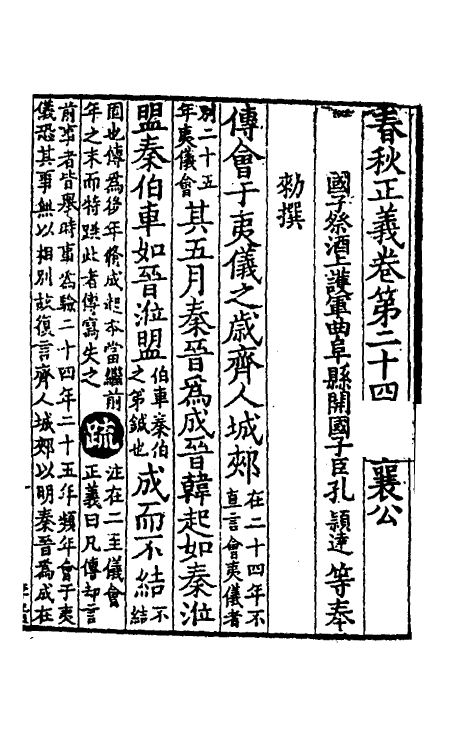 春秋正義卷第二十四 襄公
國子祭酒上護軍曲阜縣開國子臣孔穎達等奉
勑撰
傳會于夷儀之歲齊人城郟在二十四年不
直言會夷儀者
別二十五
年夷儀會其五月秦晉為成晉韓起如秦涖
盟秦伯車如晉涖盟伯車秦伯
之弟鍼也成而不結不
結
固也傳為後年脩成起本當繼前
年之末而特跳此者傳寫失之疏注在二至儀會
正義曰凡傳却言
前事者皆舉時事為驗二十四年二十五年頻年會于夷
儀恐其事無以相別故復言齊人城郟以明秦晉為成在